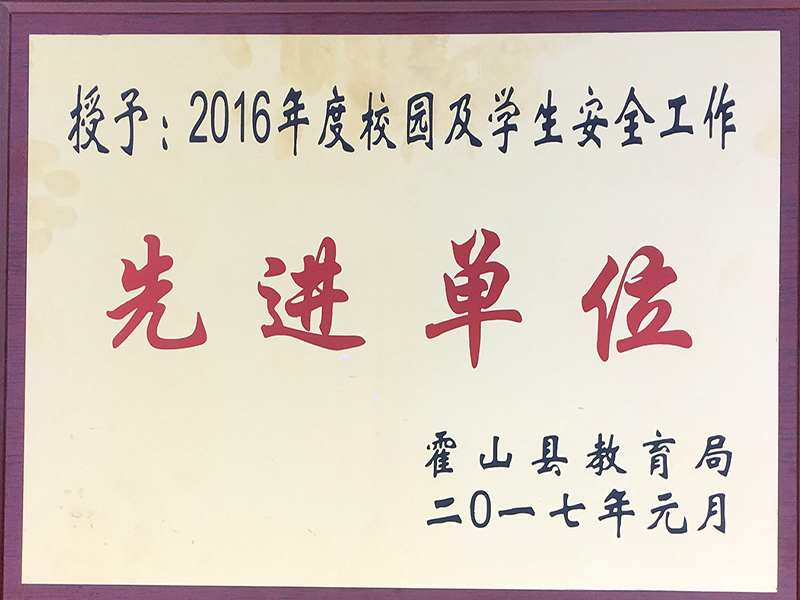 授予：2016年度校园及学生安全工作
先进单位
霍山县教育局
二0一七年元月